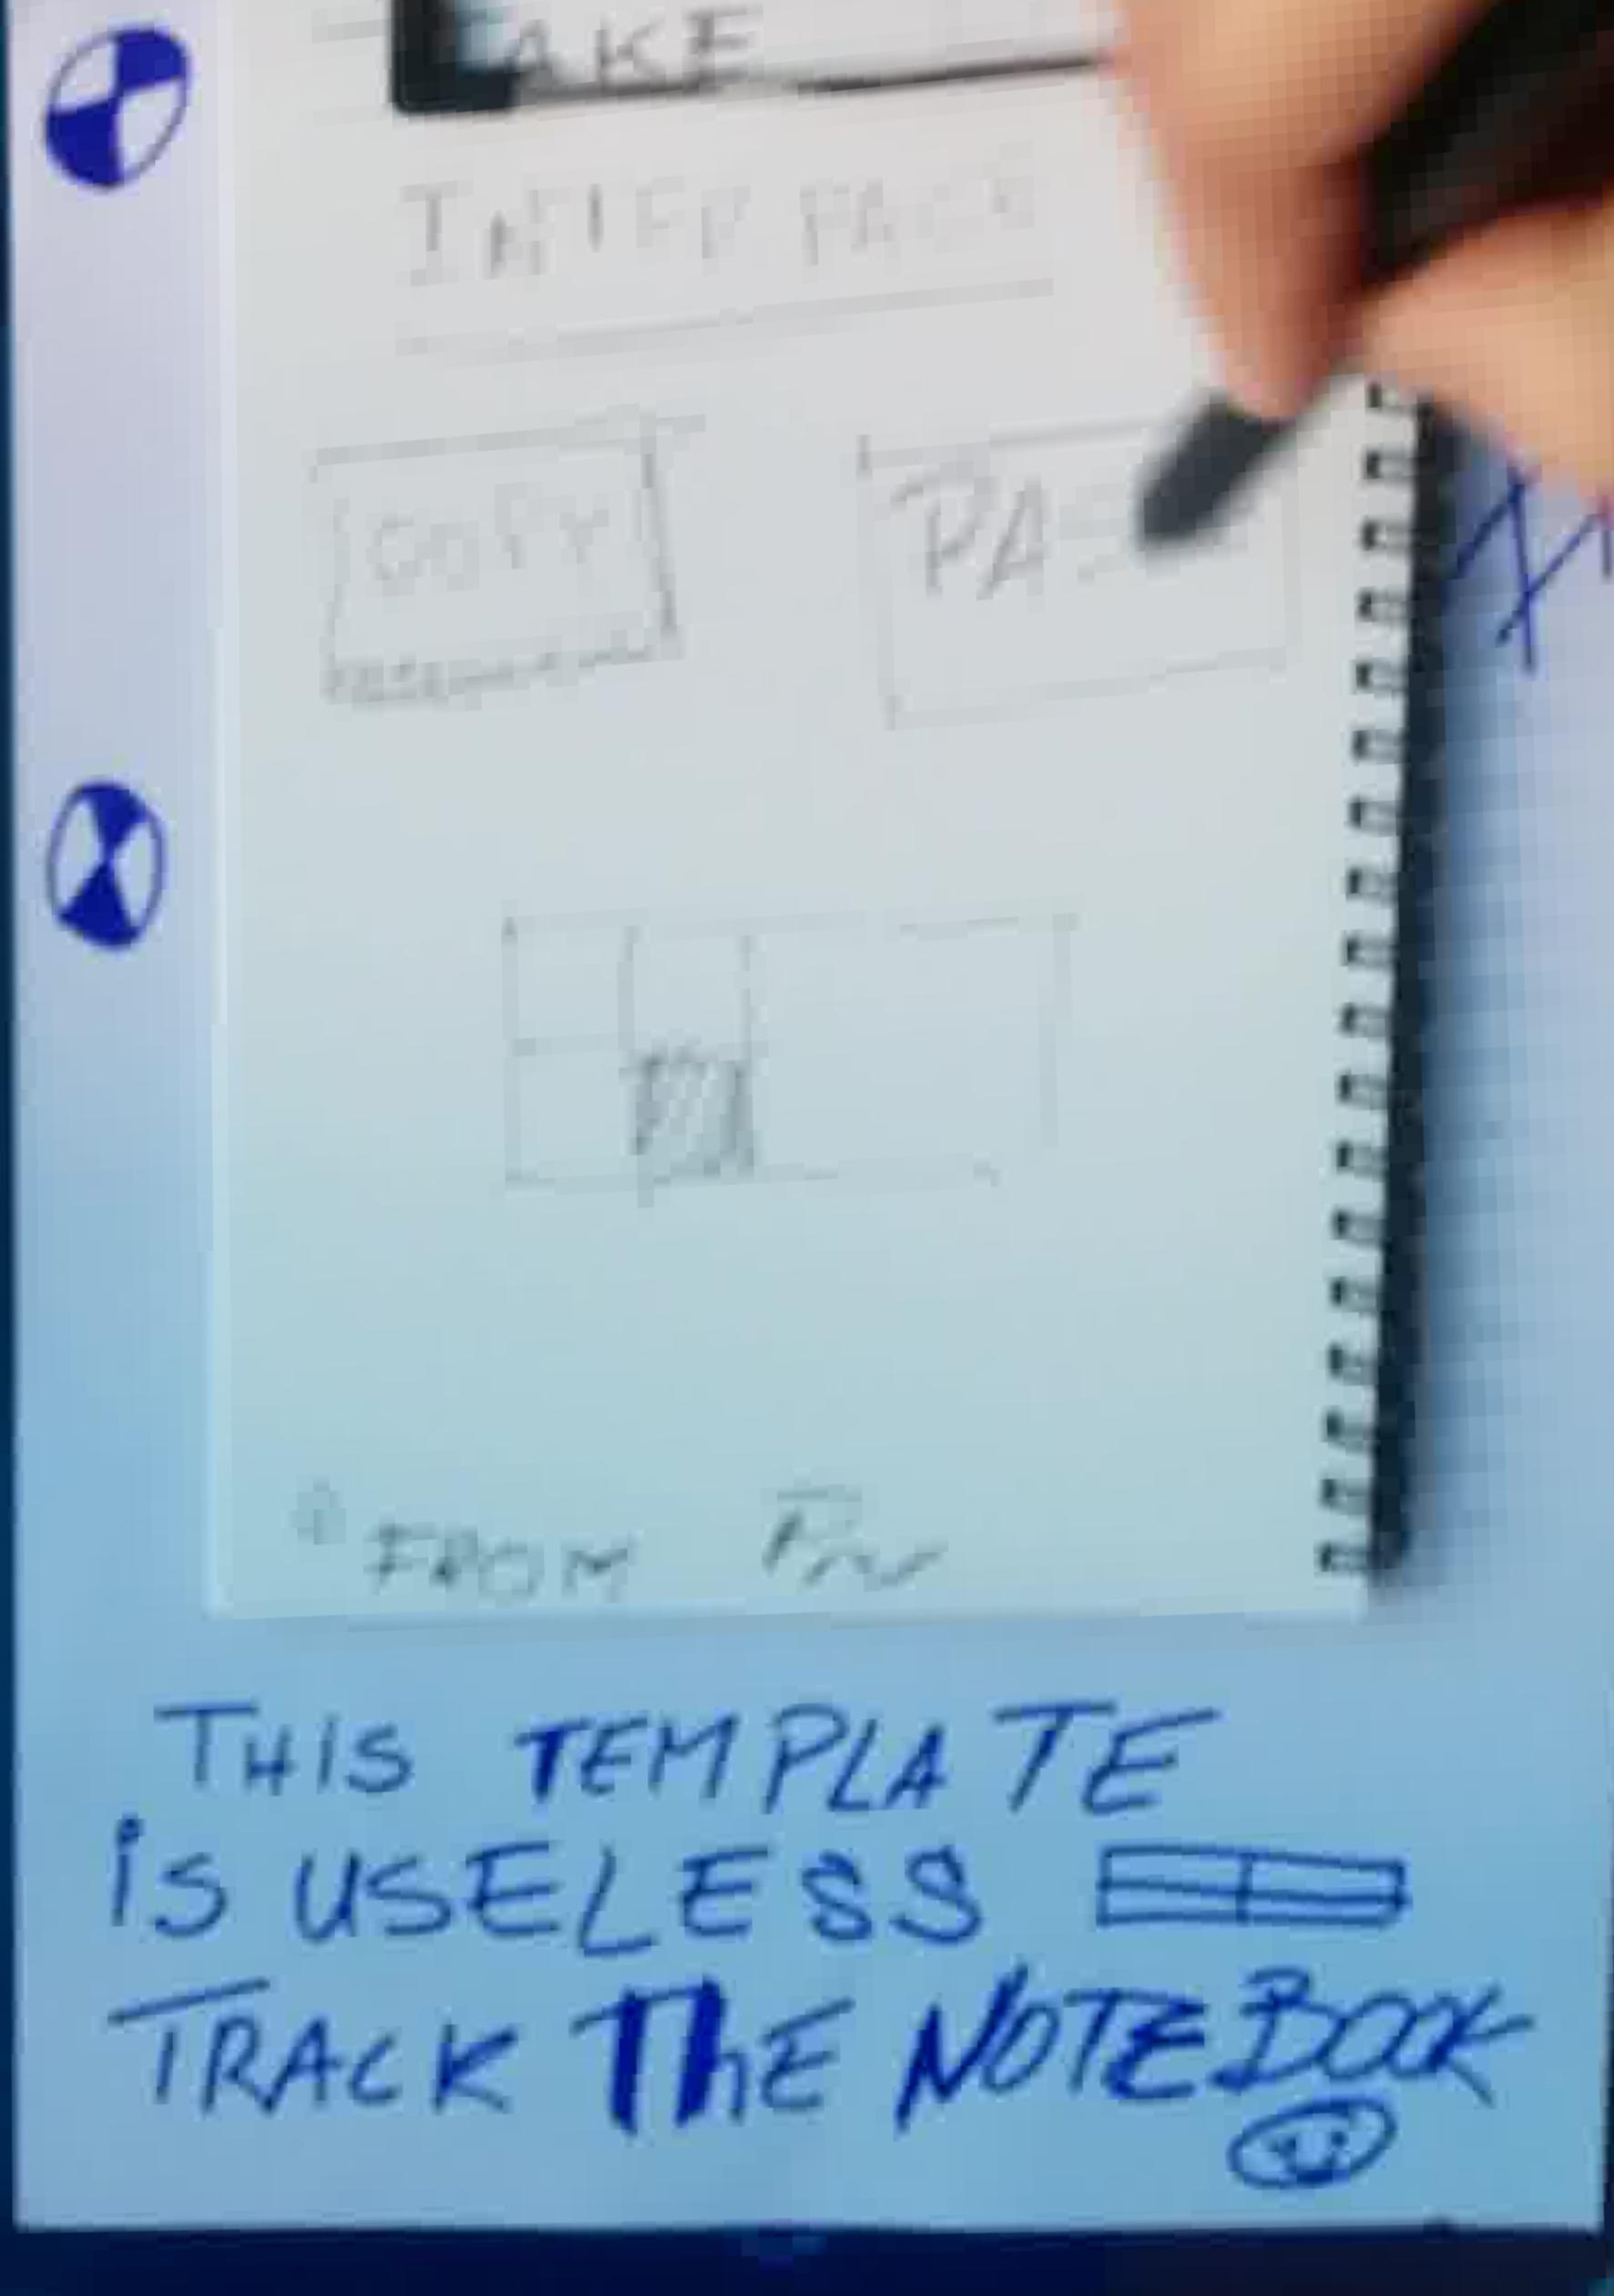 AKE
COPY
PA
FROM
THiS TEMPLATE
iS USELESS
TRACK ThE NOTEBOOK